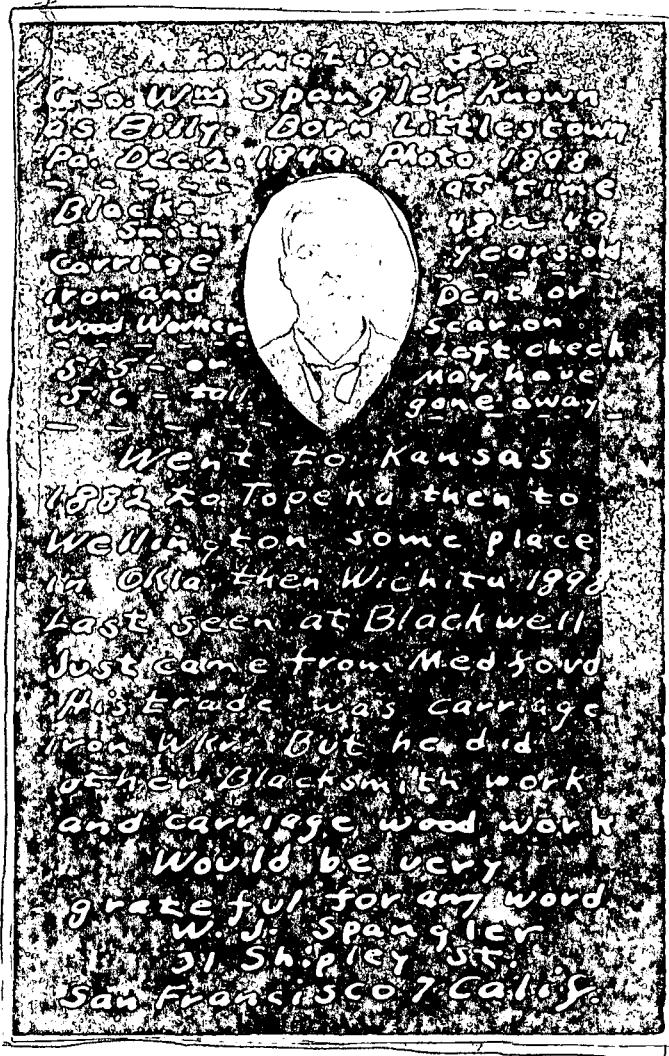 Information for
Geo. Wm Spangler Known
as Billy. Born Littlestown
Pa. Dec. 2. 1849. Photo 1898
at time
48 or 49
years old
Black-
smith
Carriage
iron and
Wood Worker
5'5" or
5'6" tall
Dent or
scar on
Left cheek
May have
gone away
Went to Kansas
1882 to Topeka then to
Wellington some place
in Okla. then Wichita 1898
Last seen at Blackwell
Just came from Medford
His trade was carriage
iron Wkr. But he did
other Blacksmith work
and carriage wood work
Would be very
grateful for any word
W. J. Spangler
31 Shipley St.
San Francisco 7 Calif.